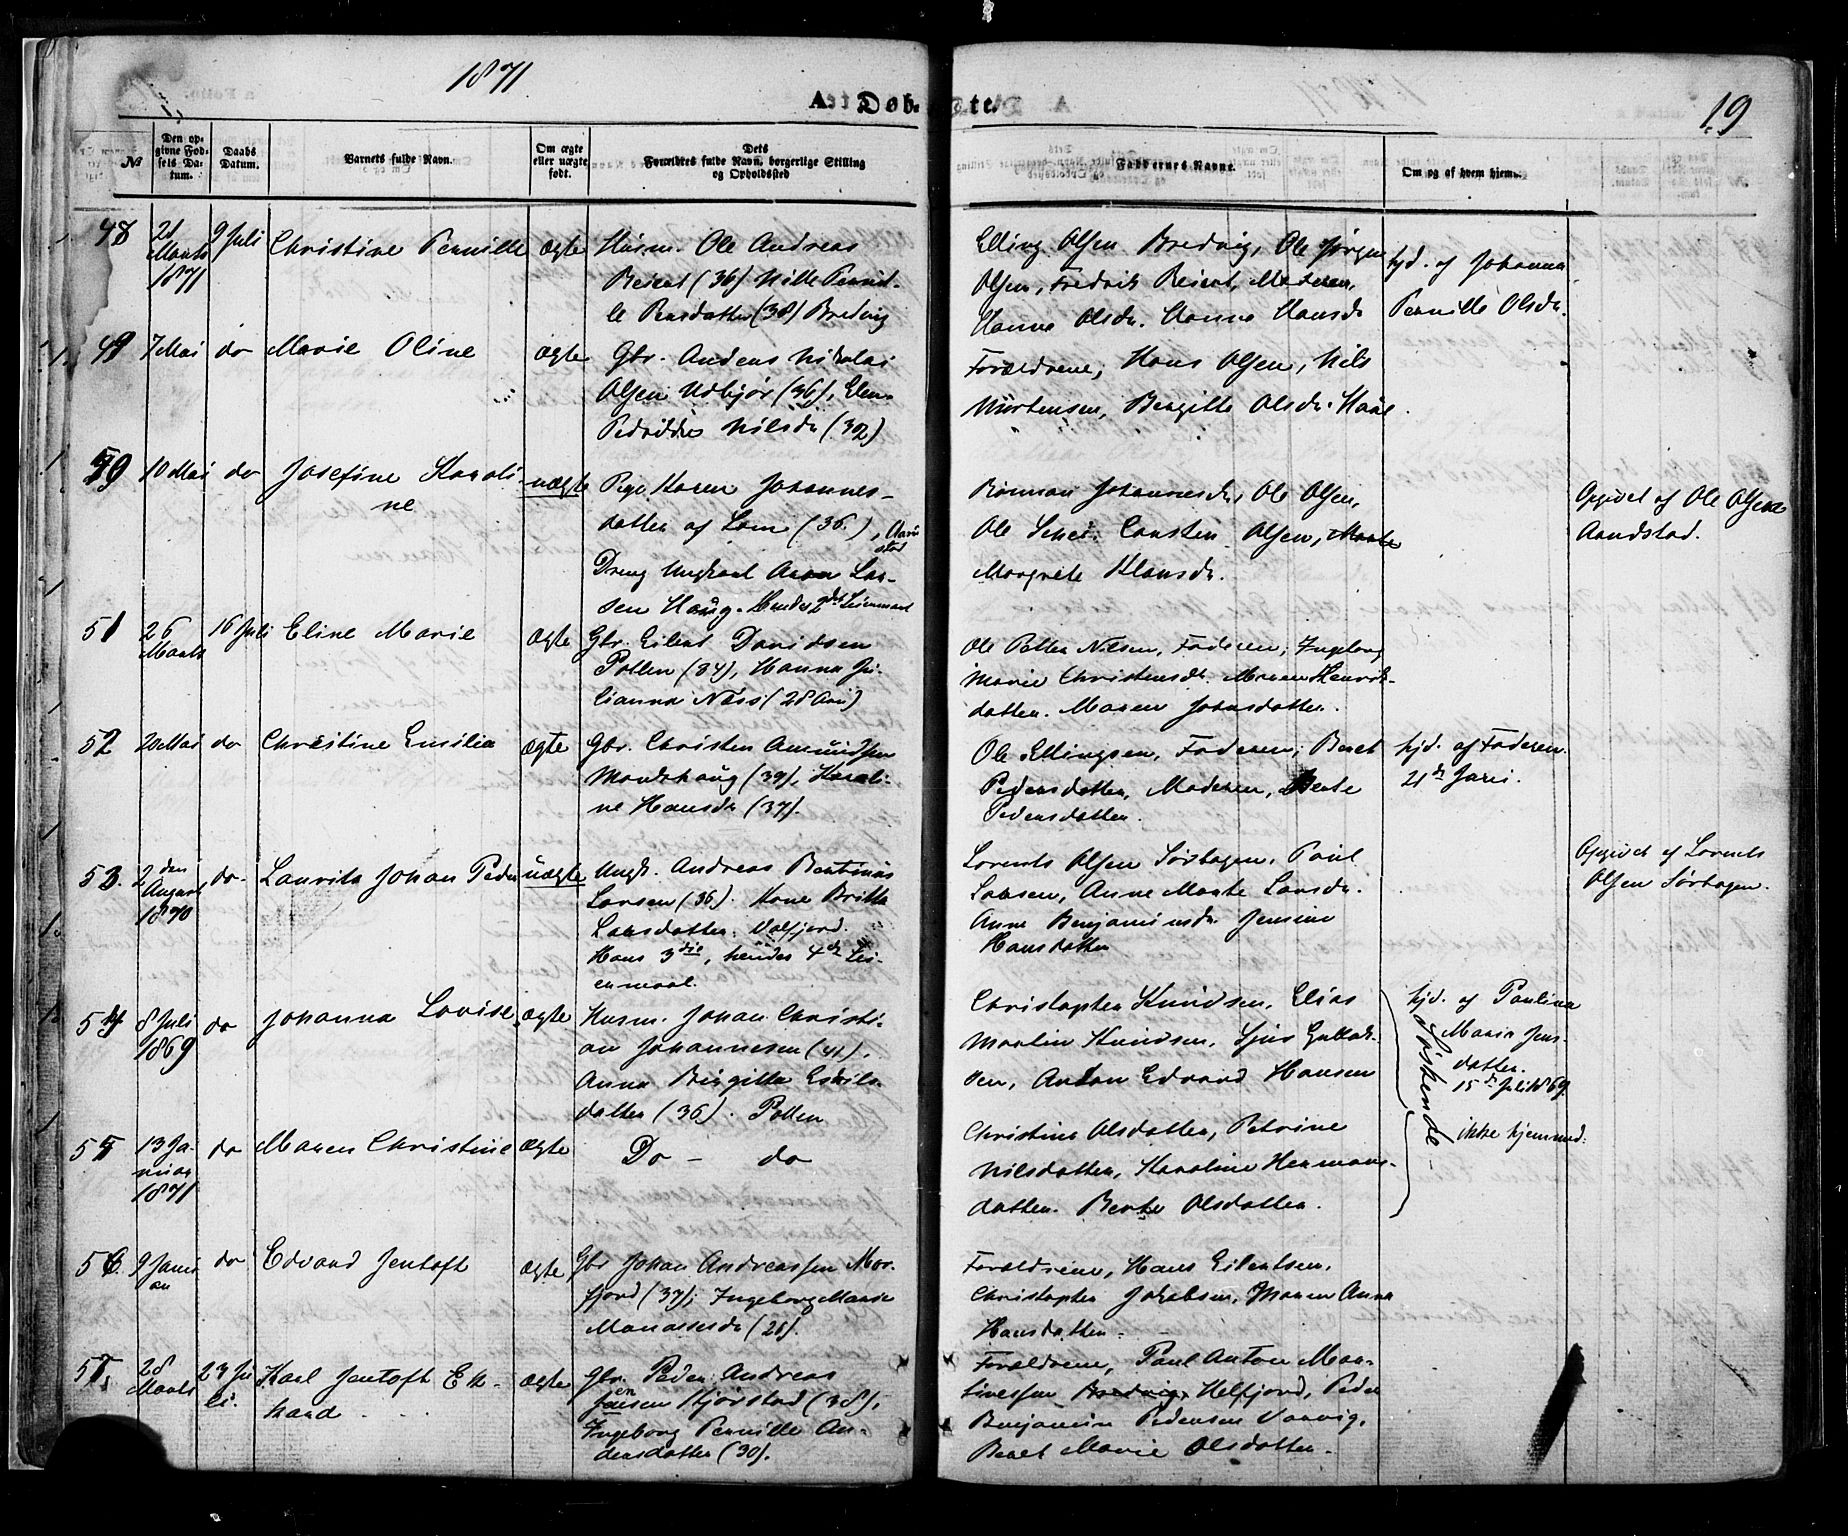 1871
A. Døbte.
19
№
Den opgivne Fødsels Datum.
Daabs Datum.
Barnets fulde Navn.
Om ægte eller uægte født.
Dets Forældres fulde Navn, borgerlige Stilling og Opholdssted
Faddernes Navne.
Om og af hvem hjem.
48
21 Marts 1871
9 Juli
Christine Pernille
ægte
Husm. Ole Andreas
Beiert (36) Nille Pernil-
le Pensdatter (38) Bredvig
Elling Olsen Bredvig, Ole Jørgen
Olsen, Fredrik Beiert, Moderen,
Hanna Olsdr. Hanna Hansdr
hjd. af Johanna
Pernille Olsdr.
49
7 Mai
do
Marie Oline
ægte
Gbr. Anders Nikolai
Olsen Udbjør (36), Elen
Nilsdr (32)
Forældrene, Hans Olsen, Nils
Mortensen, Bergitte Olsdr.
50
10 Mai
do
Josefine Karoli-
ne
uægte
Pige Karen Johannes-
datter af Lom (36),
Dreng Ungkarl Aron Lar-
sen Haug. Hendes 2det Leiermaal
Johannesdr, Ole Olsen,
Ole Carsten Olsen,
Margrete Hansdr.
Opgivet af Ole Olsen
Aandstad.
51
26 Marts
16 Juli
Eline Marie
ægte
Gbr. Eilert Davidsen
Pollen (34), Hanna Ju-
lianna Næss (28 Aar)
Ole Petter Nilsen, Faderen, Ingeborg
Marie Christensdr. Maren Henrik-
datter. Maren Johnsdatter.
52
20 Mai
do
Christine Emilie
ægte
Gbr. Christen Amundsen
Mandshaug (39), Karoli-
ne Hansdr (37).
Ole Ellingsen, Faderen, Beret
Pedersdatter, Moderen, Bente
Pedersdatter.
hjd. af Faderen
21de Juni.
53.
2den August 1870
do
Laurits Johan Peder
uægte
Ungk. Andreas Bentinus
Larsen (36). Kone Britta
Larsdatter. Valfjord.
Hans 3die, hendes 4de Lei-
ermaal.
Lorents Olsen Sørhagen, Paul
Larsen, Anne Marte Larsdr.
Anne Benjaminsdr Jensine
Hansdatter
Opgivet af Lorents
Olsen Sørhagen.
54
8 Juli 1869
do
Johanna Lovise
ægte
Husm. Johan Christi-
an Johannesen (41).
Anna Birgitte Eskils-
datter (36). Pollen
Christopher Knudsen, Elias
Martin Knudsen,
sen, Anton Edvard Hansen
hjd. af Paulina
Marie Jens-
datter.
15de Juli 1869.
Søskende
55
13 Januar 1871
do
Maren Christine
ægte
Do - do
Christine Olsdatter, Petrine
Nilsdatter, Karoline Hermans-
datter. Berte Olsdatter.
ikke hjemmed.
56.
9 Januar
do
Edvard Jentoft
ægte
Gbr Johan Andreassen Mor-
fjord (37), Ingeborg Marie
Manassesdr (28).
Forældrene, Hans Eilertsen,
Christopher Jakobsen, Maren Anna
Hansdatter.
57.
28 Marts
23 Juli.
Karl Jentoft Ek-
hard
ægte
Gbr. Peder Andreas
Jensen Kjørstad (38),
Ingeborg Pernille An-
dersdatter (30).
Forældrene, Paul Anton Mar-
tinessen Bredvig, Helfjord, Peder
Benjamin Pedersen Varvig,
Beret Marie Olsdatter.